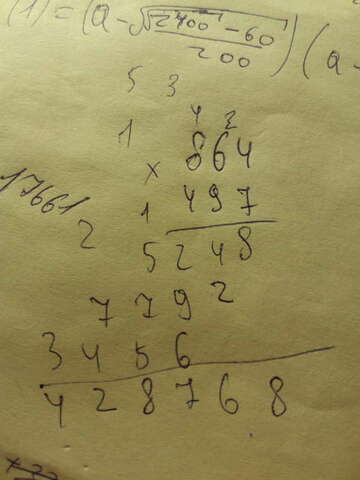 (1) = (a - √2400 - 60 / 200) (a -
5 3
4 2
1 864
× 497
17661
2 1
5248
7792
3456
428768